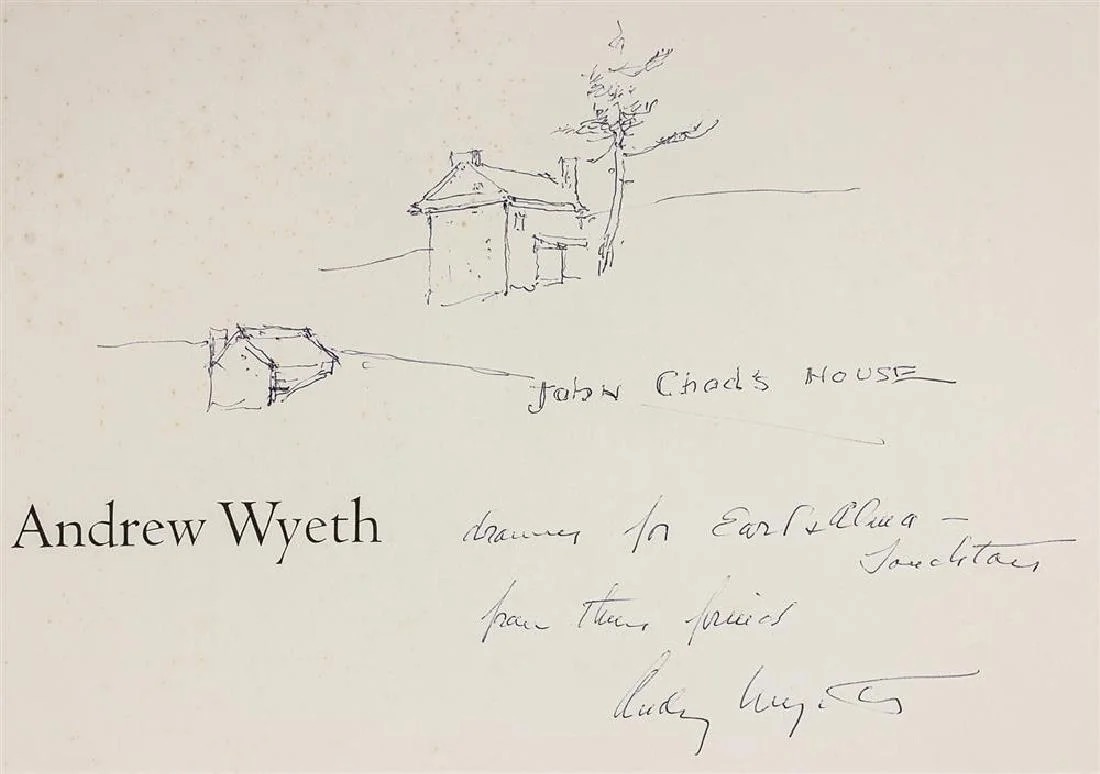 John Chad's HOUSE
Andrew Wyeth
drawn for Earl & Alma –
from their friend
Andrew Wyeth